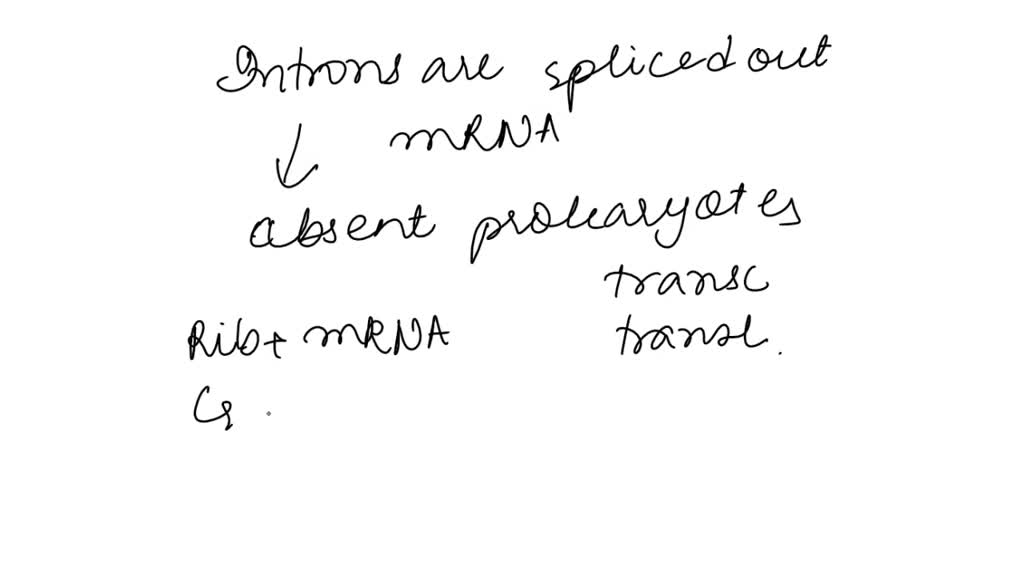 Introns are spliced out
↓ mRNA
absent prokaryotes
transc
Rib + mRNA transl.
G